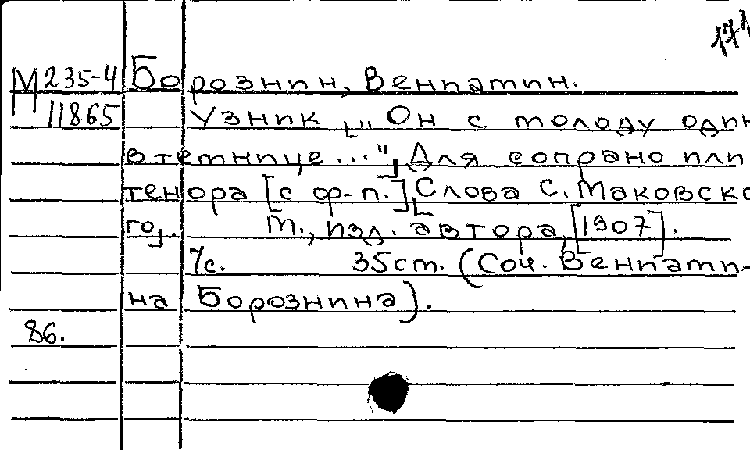 171
М 235-4 Борознин, Вениамин.
11865 Узник [„Он с молоду один
в темнице..."] Для сопрано или
тенора [с ф-п.] [Слова С. Маковско
го]. М., изд. автора, [1907].
7с. 35см. (Соч. Вениами-
на Борознина).
86.